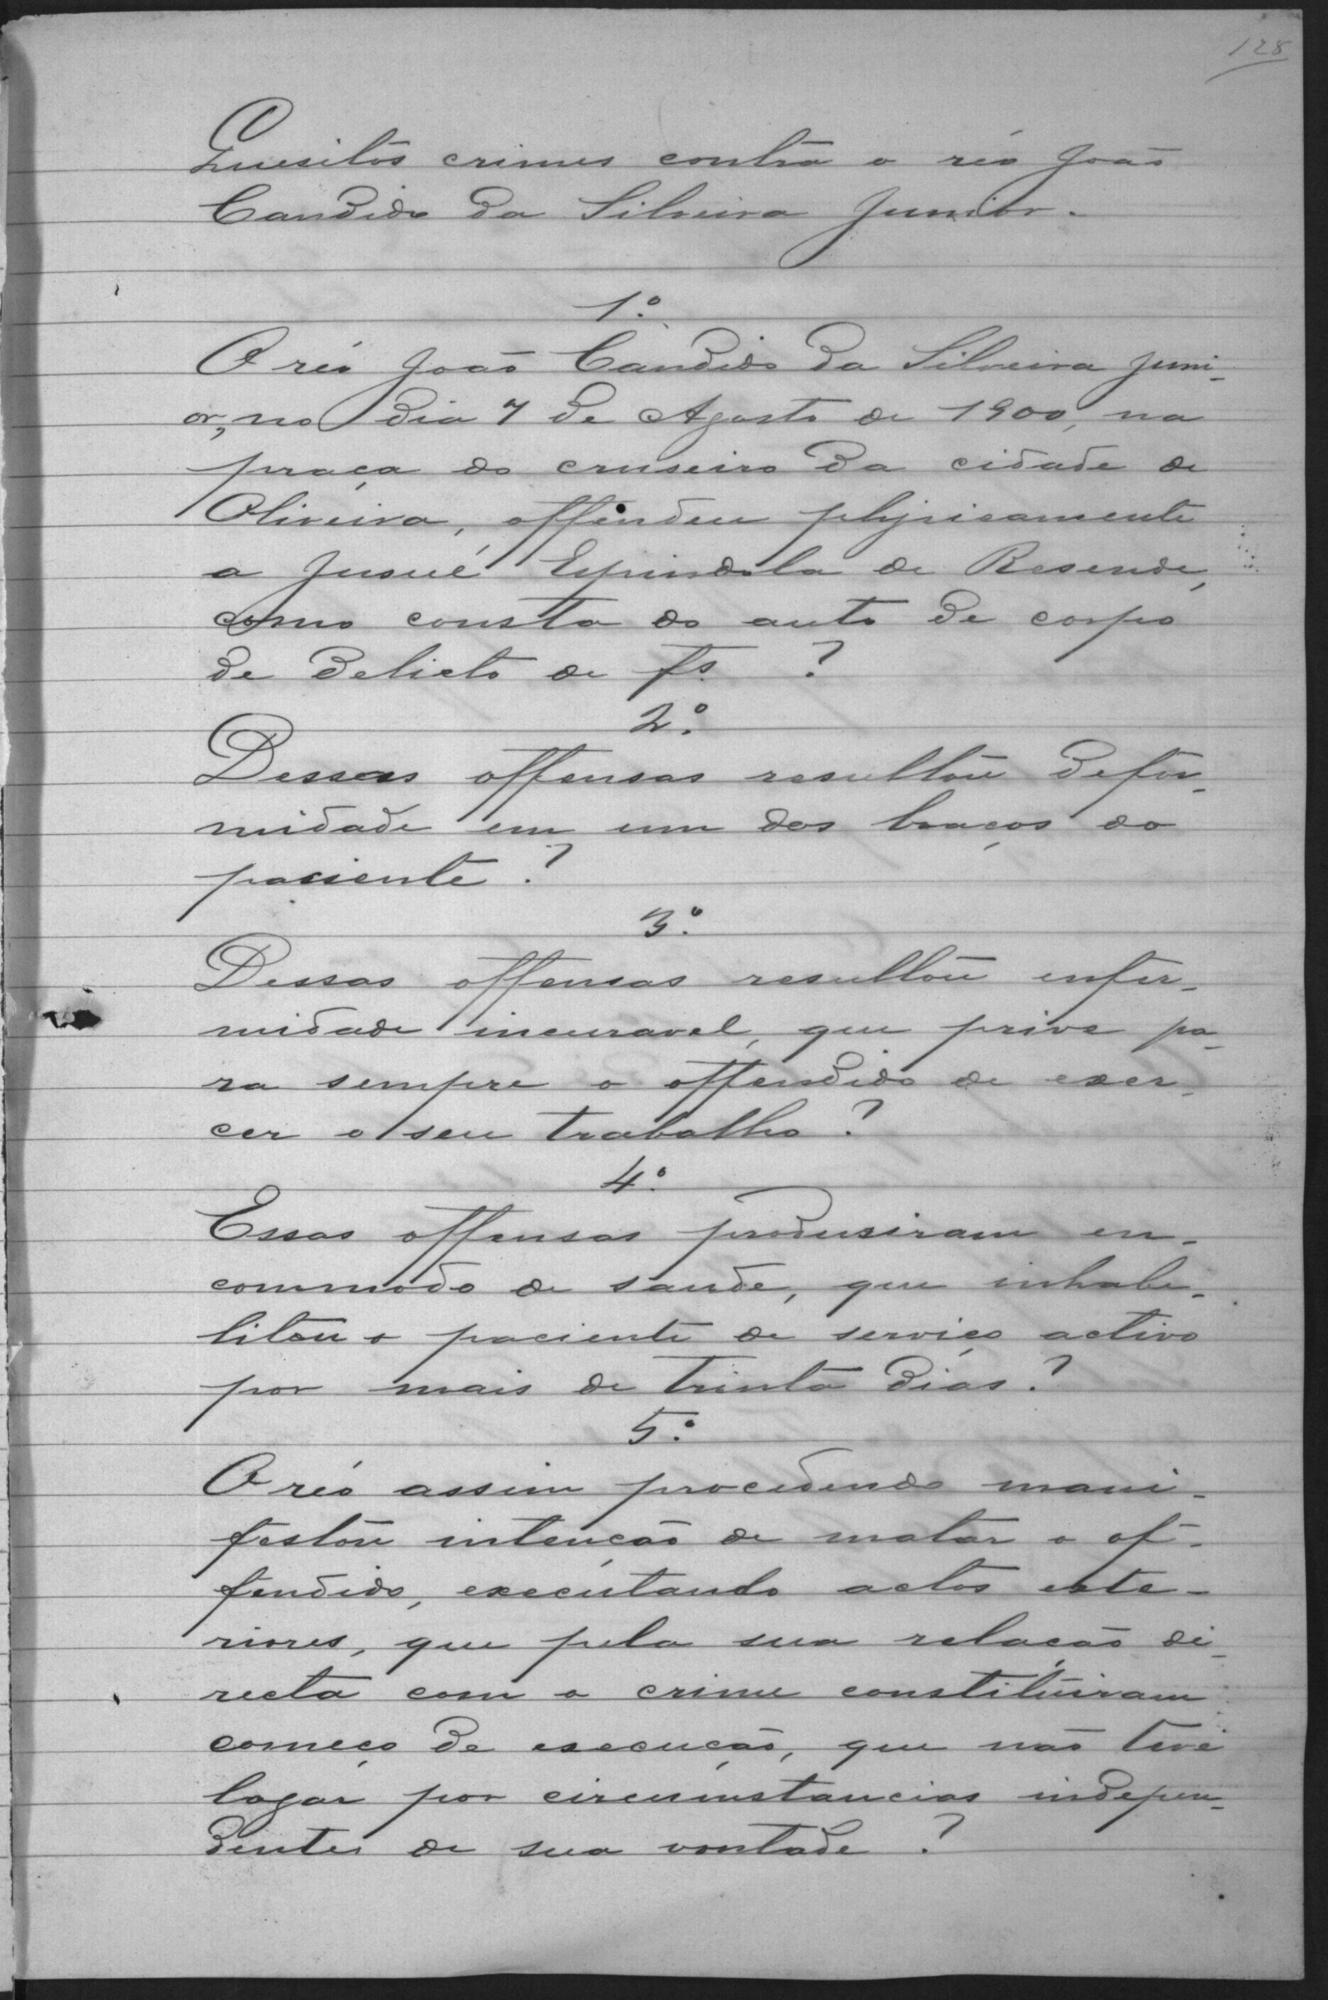 128
Quesitos crimes contra o réo João
Candido da Silveira Junior.
1º
O réo João Candido da Silveira Juni-
or, no dia 7 de Agosto de 1900, na
praça do cruseiro da cidade de
Oliveira, offendeu physicamente
a Josué Espindola de Resende,
como consta do auto de corpo
de delicto de fs. ?
2º
Dessas offensas resultou defor-
midade em um dos braços do
paciente ?
3º
Dessas offensas resultou enfer-
midade incuravel, que prive pa-
ra sempre o offendido de exer-
cer o seu trabalho ?
4º
Essas offensas produsiram en-
commodo de saude, que inhabi-
litou o paciente de serviço activo
por mais de trinta dias ?
5º
O réo assim procedendo mani-
festou intenção de matar o of-
fendido, executando actos exte-
riores, que pela sua relação di-
recta com o crime constituiram
começo de execução, que não teve
logar por circumstancias indepen-
dentes de sua vontade ?